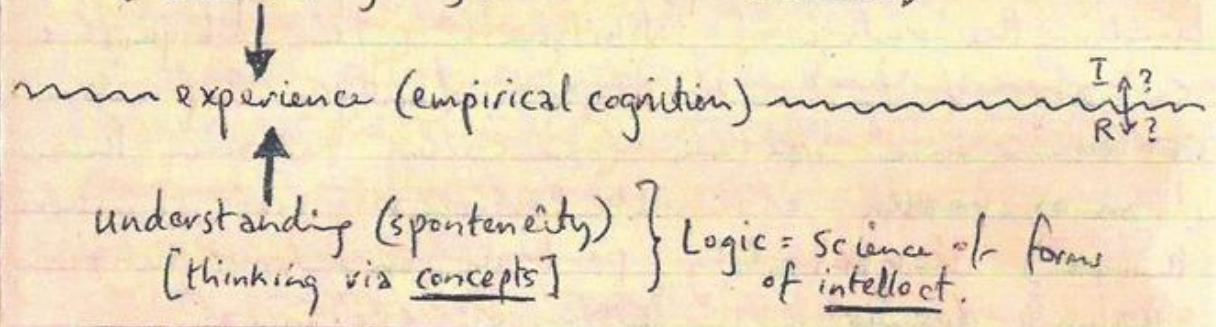 I ?
experience (empirical cognition)
R ?
understanding (sponteneity)
[thinking via concepts]
} Logic = science of forms
of intellect.